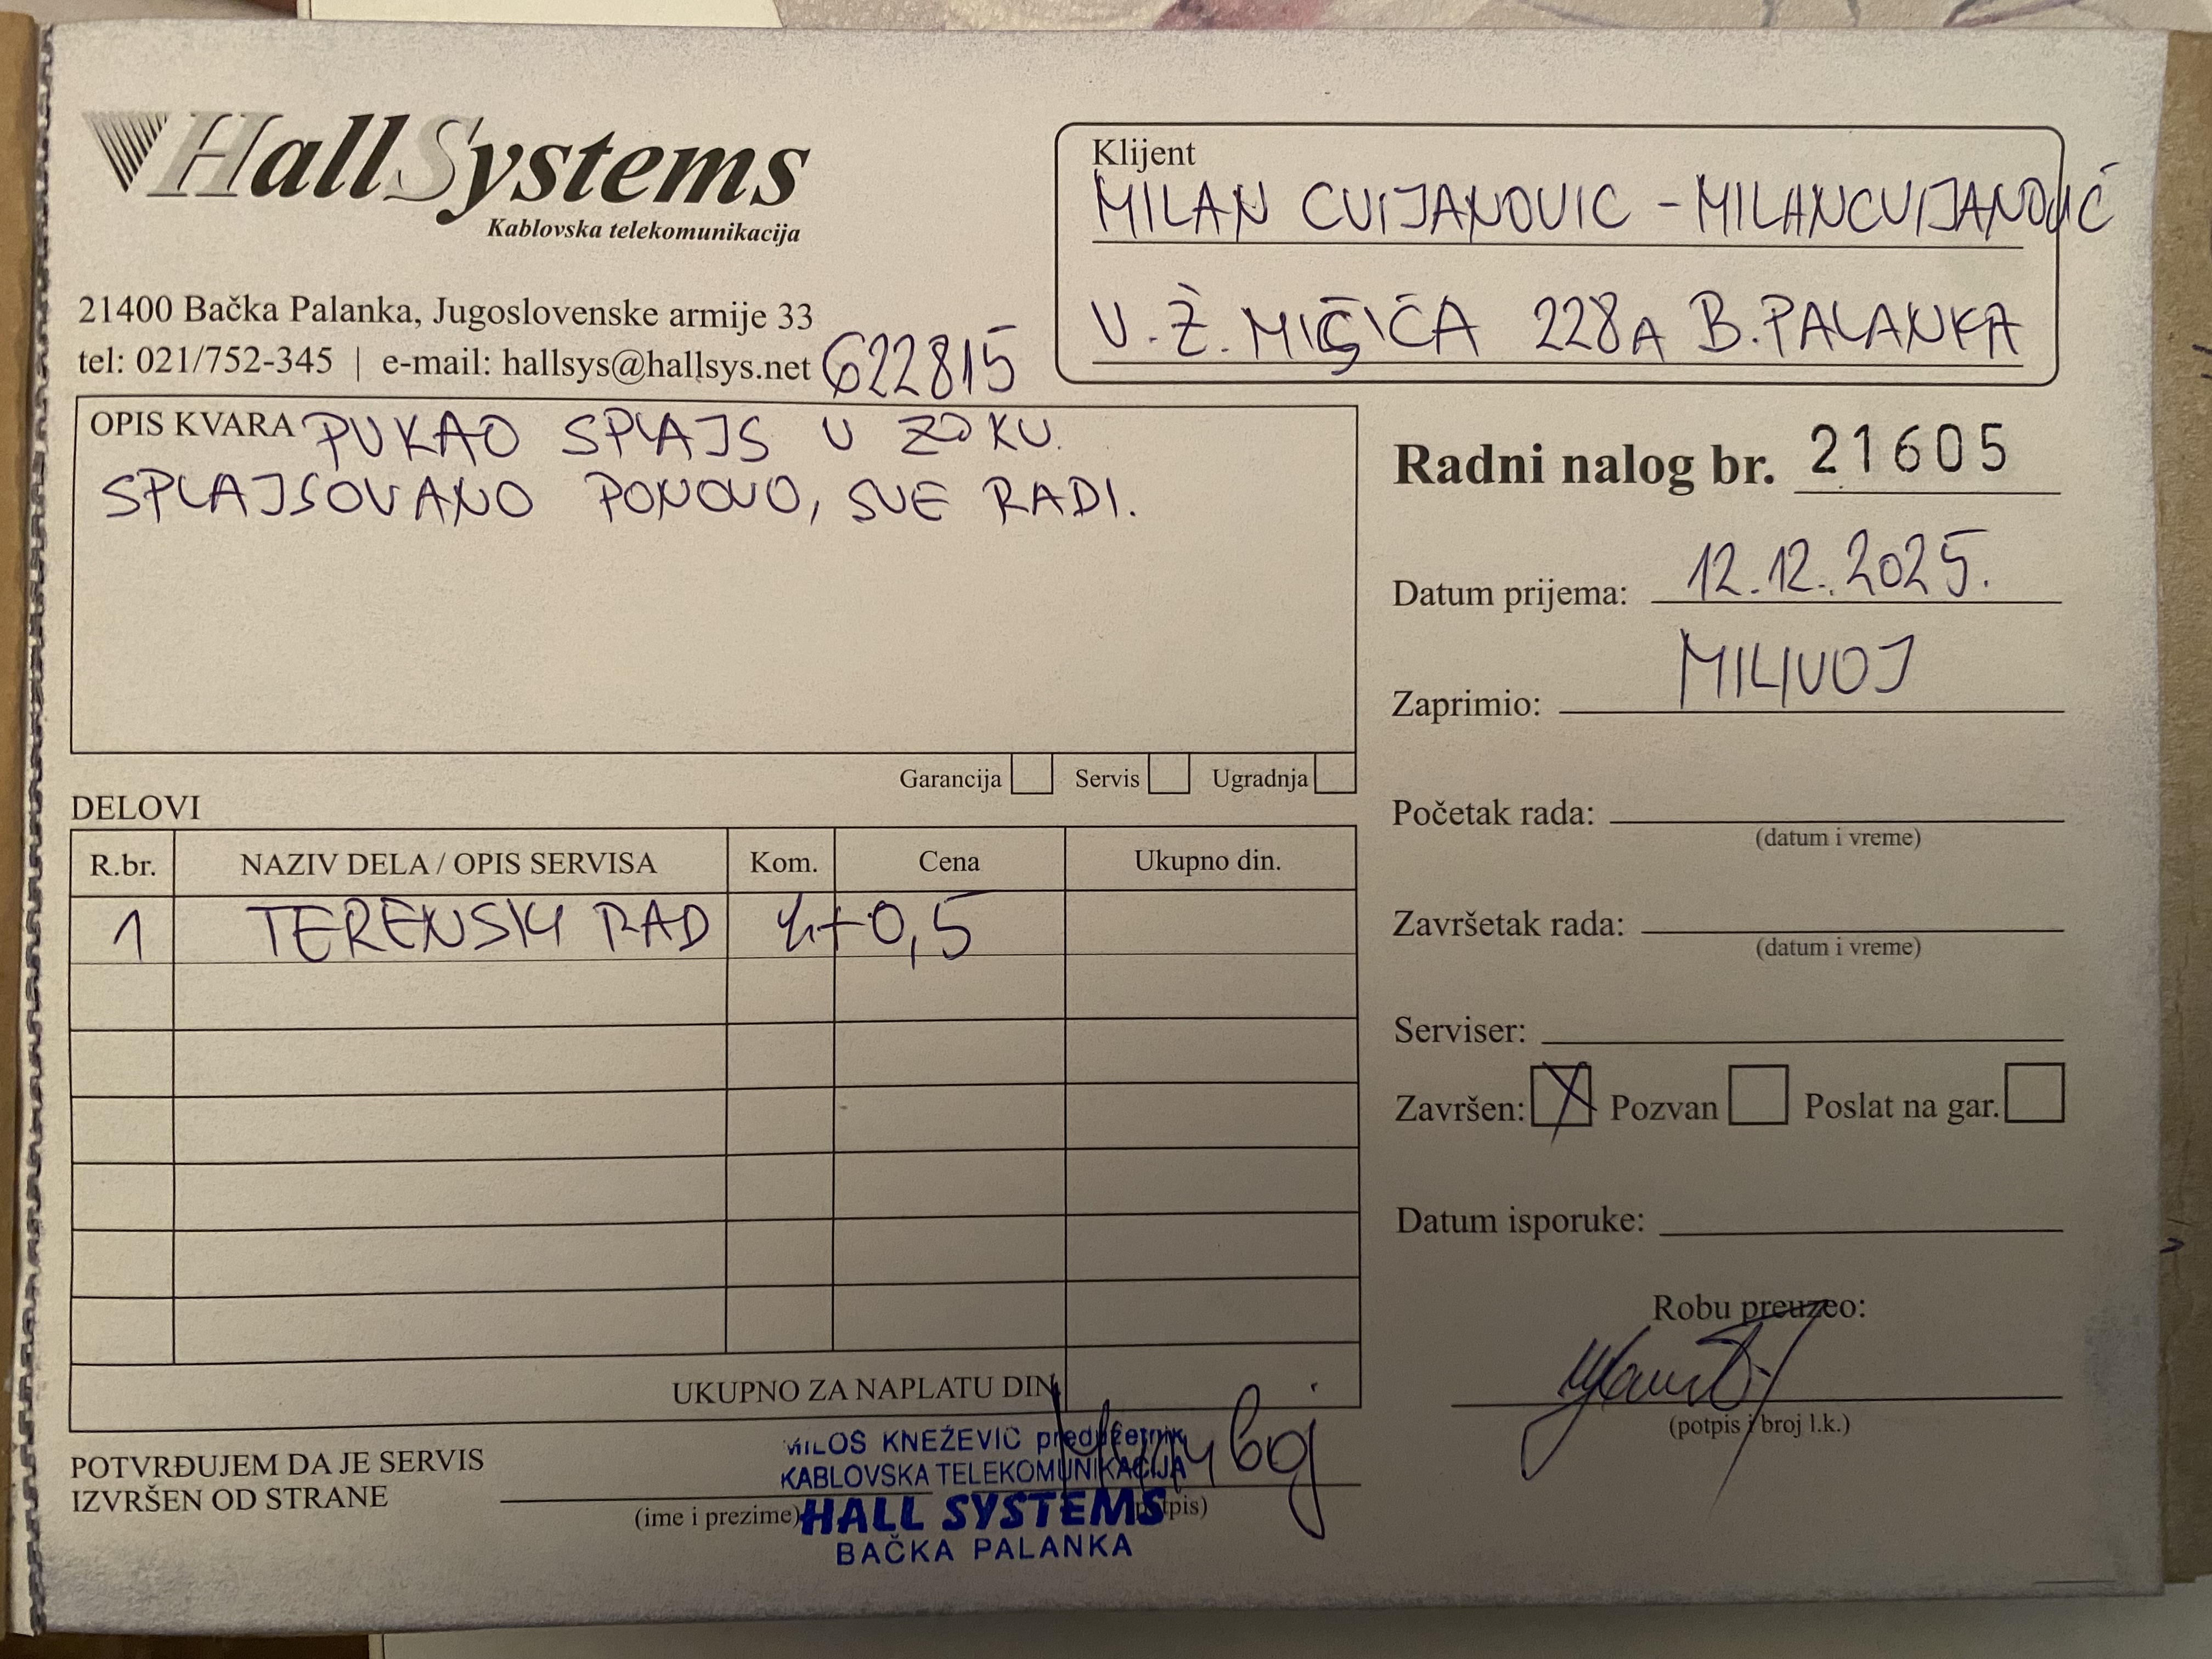 HallSystems
Kablovska telekomunikacija
21400 Bačka Palanka, Jugoslovenske armije 33
tel: 021/752-345 | e-mail: hallsys@hallsys.net 622815
Klijent
MILAN CVIJANOVIC - MILANCVIJANOVIĆ
V. Ž. MIŠIĆA 228A B. PALANKA
OPIS KVARA PUKAO SPLAJS U ZOKU.
SPLAJSOVANO PONOVO, SVE RADI.
Garancija Servis Ugradnja
Radni nalog br. 21605
Datum prijema: 12.12.2025.
Zaprimio: MILIVOJ
Početak rada:
(datum i vreme)
Završetak rada:
(datum i vreme)
Serviser:
Završen: X Pozvan Poslat na gar.
Datum isporuke:
Robu preuzeo:
(potpis i broj l.k.)
DELOVI
R.br. NAZIV DELA / OPIS SERVISA Kom. Cena Ukupno din.
1 TERENSKI RAD +0,5
UKUPNO ZA NAPLATU DIN.
POTVRĐUJEM DA JE SERVIS
IZVRŠEN OD STRANE
(ime i prezime) (potpis)
MILOŠ KNEŽEVIĆ preduzetnik
KABLOVSKA TELEKOMUNIKACIJA
HALL SYSTEMS
BAČKA PALANKA